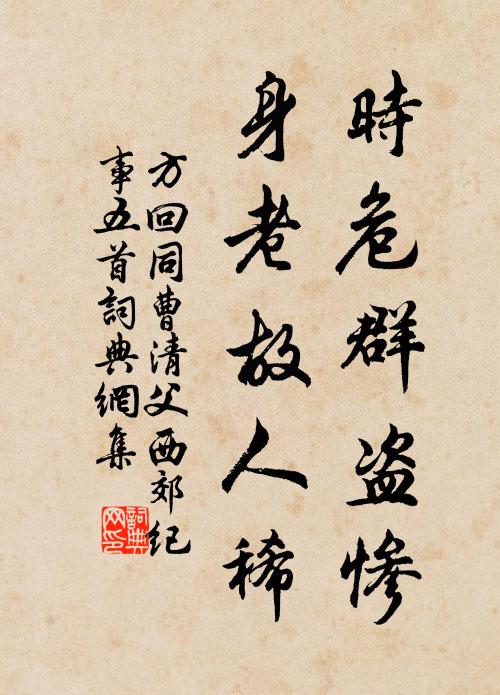 時危群盗慘
身老故人稀
方回同曹清父西郊紀
事五首詞典網集
詞典
网印